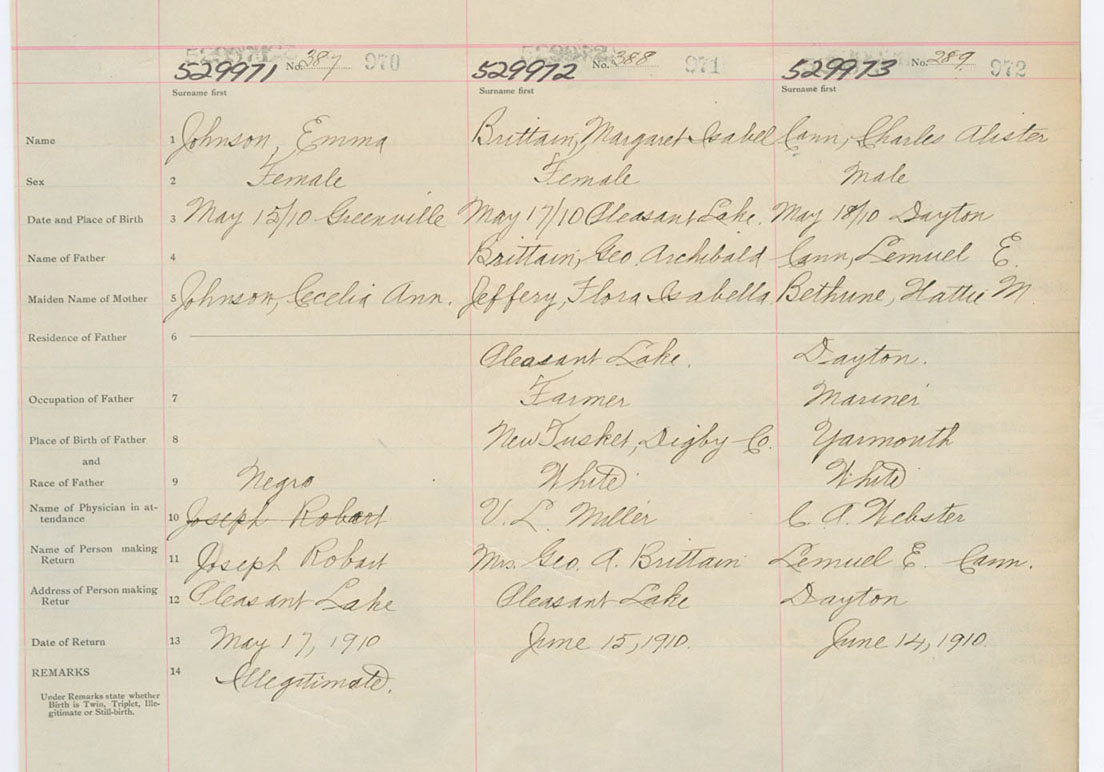 529971 No. 387 970 529972 No. 388 971 529973 No. 289 972
Surname first Surname first Surname first
Name 1 Johnson, Emma Brittain, Margaret Isabel Cann, Charles Alister
Sex 2 Female Female Male
Date and Place of Birth 3 May 15/10 Greenville May 17/10 Pleasant Lake. May 18/10 Dayton
Name of Father 4 Brittain, Geo. Archibald Cann, Lemuel E.
Maiden Name of Mother 5 Johnson, Cecelia Ann. Jeffery, Flora Isabella Bethune, Hattie M.
Residence of Father 6 Pleasant Lake. Dayton.
Occupation of Father 7 Farmer Mariner
Place of Birth of Father 8 New Tusket, Digby Co. Yarmouth
and
Race of Father 9 Negro White White
Name of Physician in at-
tendance 10 Joseph Robart V. L. Miller C. A. Webster
Name of Person making
Return 11 Joseph Robart Mrs. Geo. A. Brittain Lemuel E. Cann.
Address of Person making
Retur 12 Pleasant Lake Pleasant Lake Dayton
Date of Return 13 May 17, 1910 June 15, 1910. June 14, 1910.
REMARKS 14 Illegitimate.
Under Remarks state whether
Birth is Twin, Triplet, Ille-
gitimate or Still-birth.